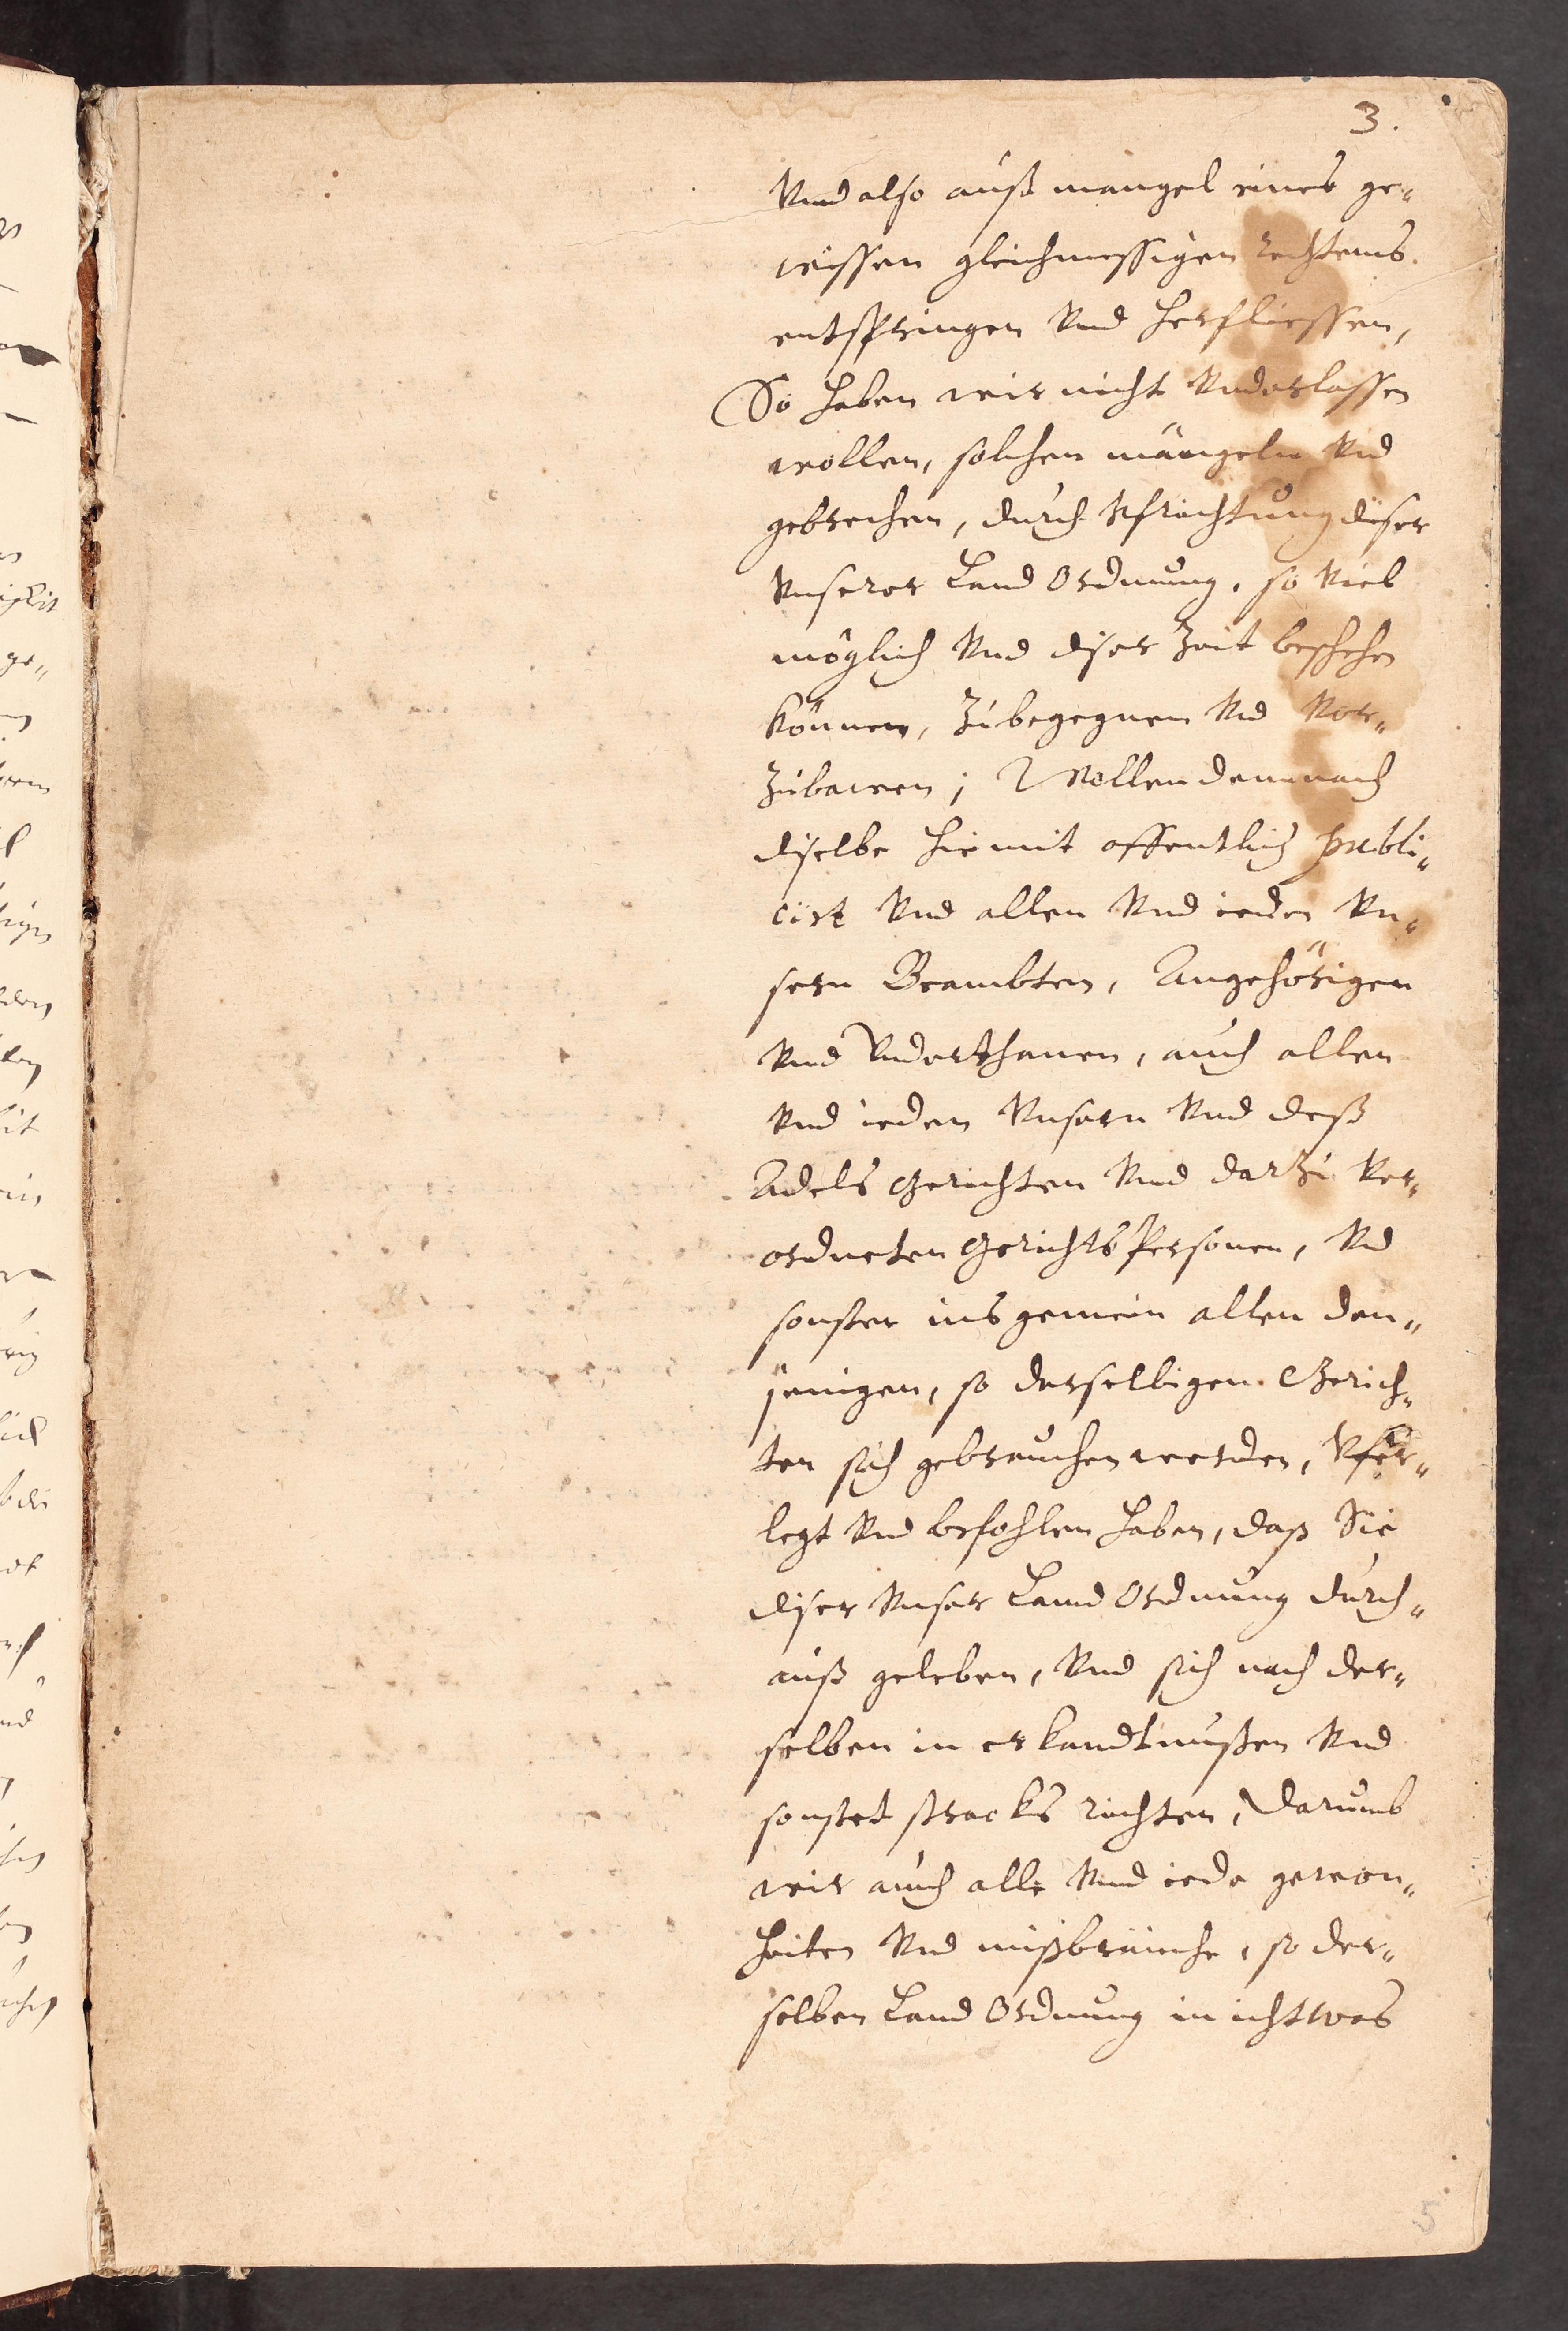 3.
Vnd also auß mangel eines ge„
wissen gleichmessigen rechtens
entspringen Vnd herfliessen,
So haben wir nicht Vnderlassen
wollen, solchen mängeln Vnd
gebrechen, durch Vfrichtung diser
Vnserer Land Ordnung, so Viel
möglich Vnd diser Zeit beschehen
können, Zubegegnen Vnd Vor„
Zubawen; Wollen demnach
diselbe hiemit offentlich publi„
cirt Vnd allen Vnd ieden Vn„
sern Beambten, Angehörigen
Vnd Vnderthanen, auch allen
Vnd ieden Vnsern Vnd deß
Adels Gerichten Vnd darZu Ver„
ordneten Gerichts Personen, Vnd
sonsten ins gemein allen den„
jenigen, so derselbigen Gerich„
ten sich gebrauchen werden, Vfer„
legt Vnd befohlen haben, daß Sie
diser Vnser Land Ordnung durch„
auß geleben, Vnd sich nach der„
selben in erkandtnußen Vnd
sonstet stracks richten, Darumb
wir auch alle Vnd iede gewon„
heiten Vnd mißbräuche, so der„
selben Land Ordnung in ichtwas
5